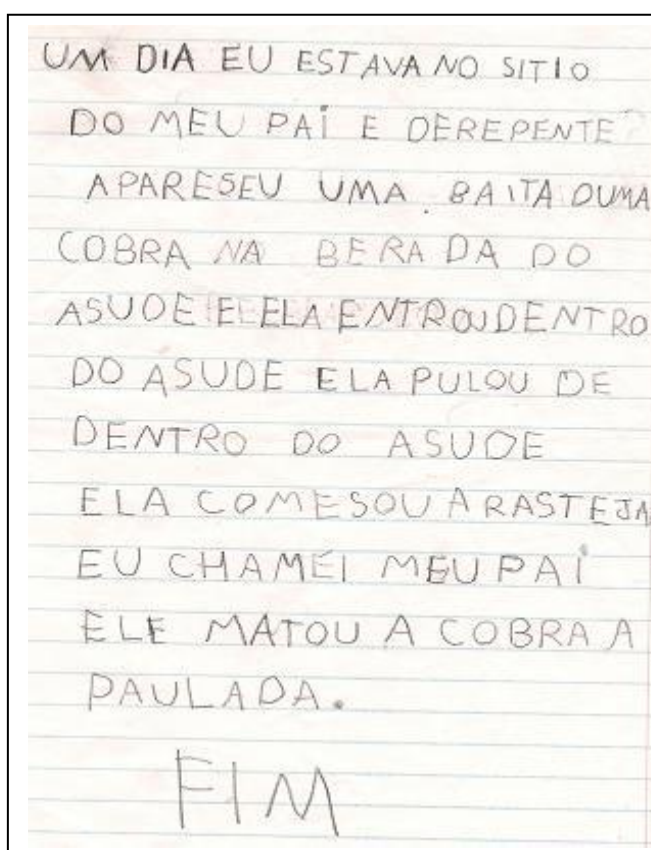 UM DIA EU ESTAVA NO SITIO
DO MEU PAI E DEREPENTE
APARESEU UMA BAITA DUMA
COBRA NA BERADA DO
ASUDE E ELA ENTROU DENTRO
DO ASUDE ELA PULOU DE
DENTRO DO ASUDE
ELA COMESOU A RASTEJA
EU CHAMEI MEU PAI
ELE MATOU A COBRA A
PAULADA.
FIM